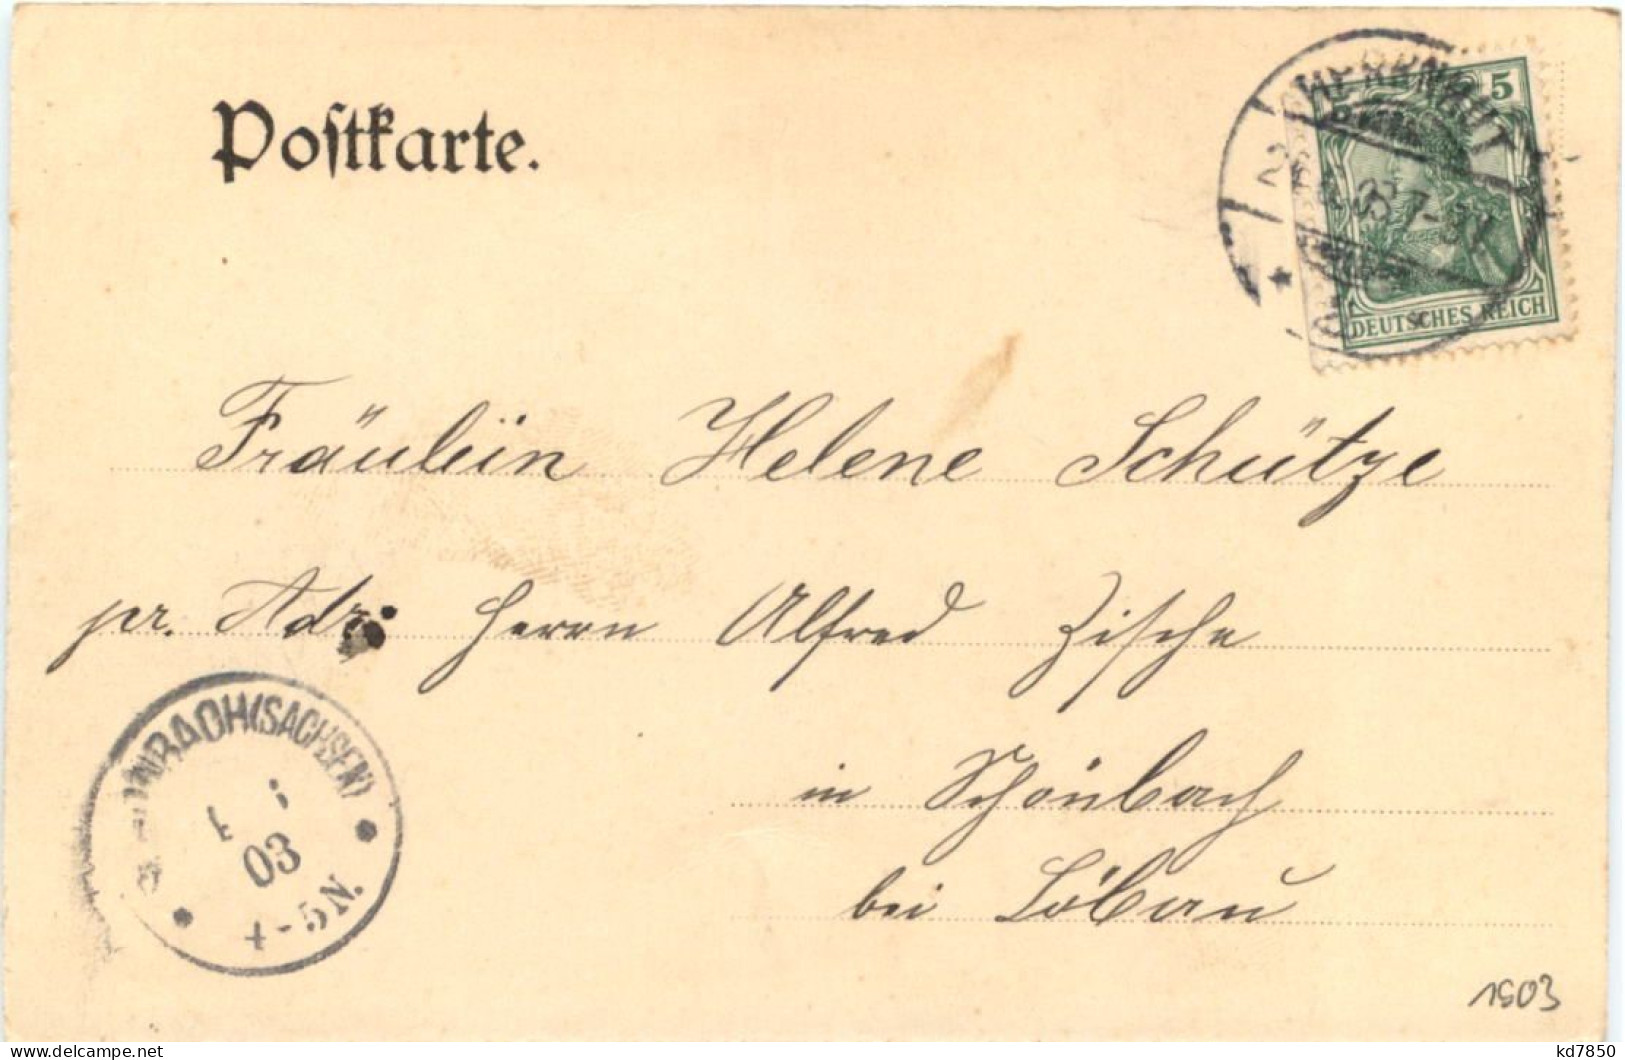 Postkarte.
HERRNHUT
5
DEUTSCHES REICH
Fräulein Helene Schütze
pr. Adr. Herrn Alfred Zische
in Schönbach
bei Löbau
(SACHSEN)
03
4-5N.
1903
delcampe.net
kd7850